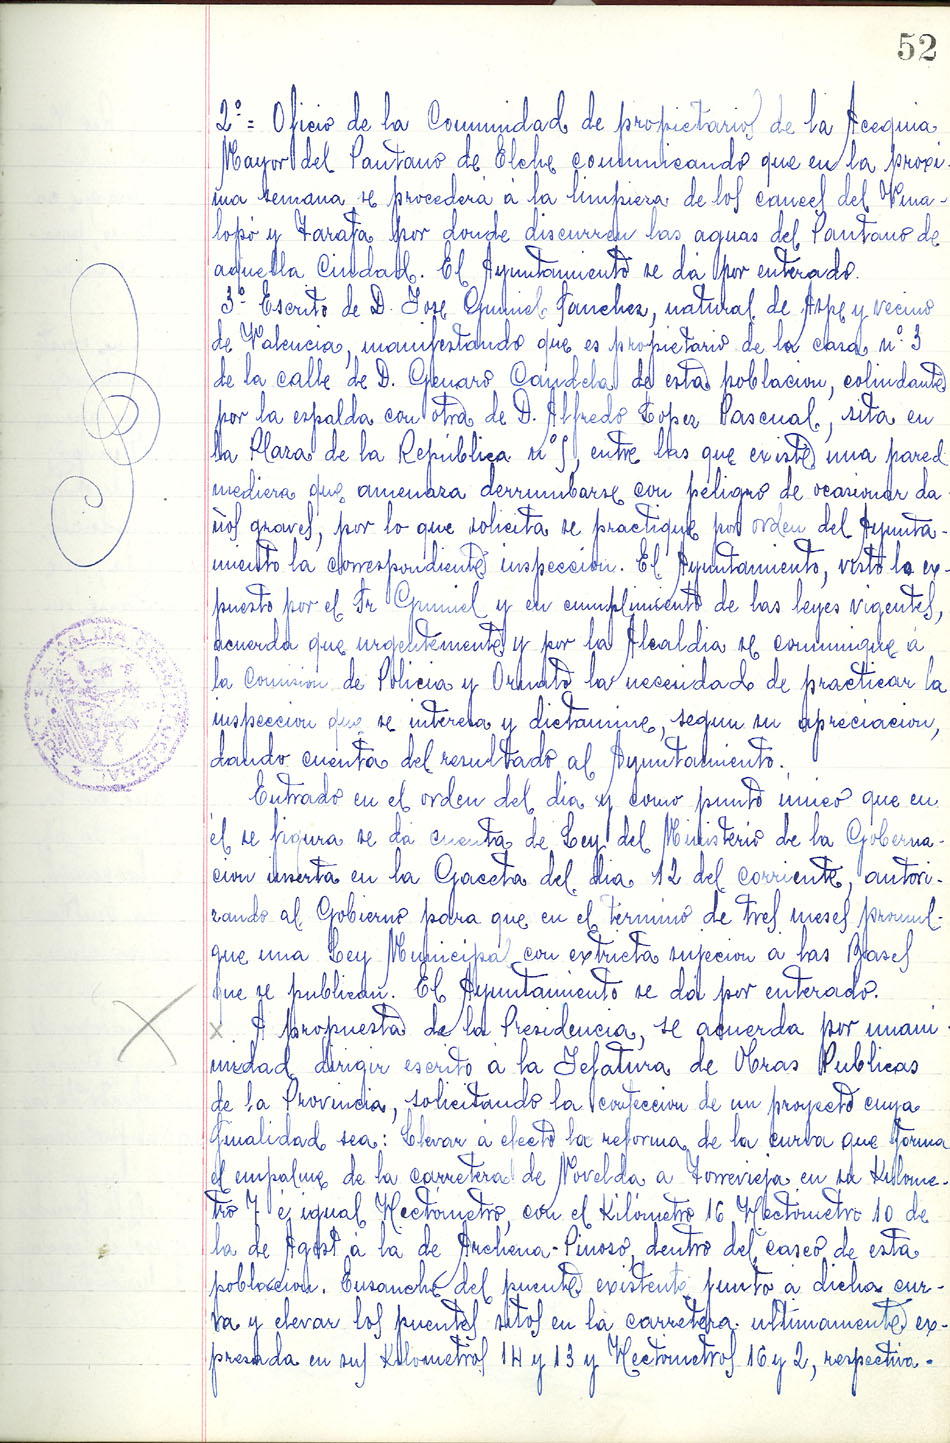 52
2º = Oficio de la Comunidad de propietarios de la Acequia
Mayor del Pantano de Elche comunicando que en la proxi-
ma semana se procederá á la limpieza de los cauces del Vina-
lopó y Tarafa por donde discurren las aguas del Pantano de
aquella Ciudad. El Ayuntamiento se dá por enterado.
3º Escrito de D. Jose Gumiel Sanchez, natural de Aspe y vecino
de Valencia, manifestando que es propietario de la casa nº 3
de la calle de D. Genaro Candela de esta poblacion, colindante
por la espalda con otra de D. Alfredo Lopez Pascual, sita en
la Plaza de la República nº 5, entre las que existe una pared
mediera que amenaza derrumbarse con peligro de ocasionar da-
ños graves, por lo que solicita se practique por orden del Ayunta-
miento la correspondiente inspeccion. El Ayuntamiento, visto lo ex-
puesto por el Sr Gumiel y en cumplimiento de las leyes vigentes,
acuerda que urgentemente y por la Alcaldia se comunique á
la Comision de Policia y Ornato la necesidad de practicar la
inspeccion que se interesa y dictamine, segun su apreciacion,
dando cuenta del resultado al Ayuntamiento.
Entrado en el orden del dia y como punto único que en
él se figura se dá cuenta de Ley del Ministerio de la Goberna-
cion inserta en la Gaceta del dia 12 del corriente, autori-
zando al Gobierno para que en el término de tres meses promul-
gue una Ley Municipal con extricta sujecion a las Bases
que se publican. El Ayuntamiento se dá por enterado.
x A propuesta de la Presidencia, se acuerda por unani-
midad dirigir escrito á la Jefatura de Obras Publicas
de la Provincia, solicitando la confeccion de un proyecto cuya
finalidad sea: Llevar á efecto la reforma de la curva que forma
el empalme de la carretera de Novelda a Torrevieja en su Kilome-
tro 7 é igual Hectómetro, con el Kilómetro 16 Hectómetro 10 de
la de Agost á la de Archena-Pinoso, dentro del casco de esta
poblacion. Ensanche del puente existente junto á dicha cur-
va y elevar los puentes sitos en la carretera ultimamente ex-
presada en sus Kilometros 14 y 13 y Hectometros 16 y 2, respectiva-